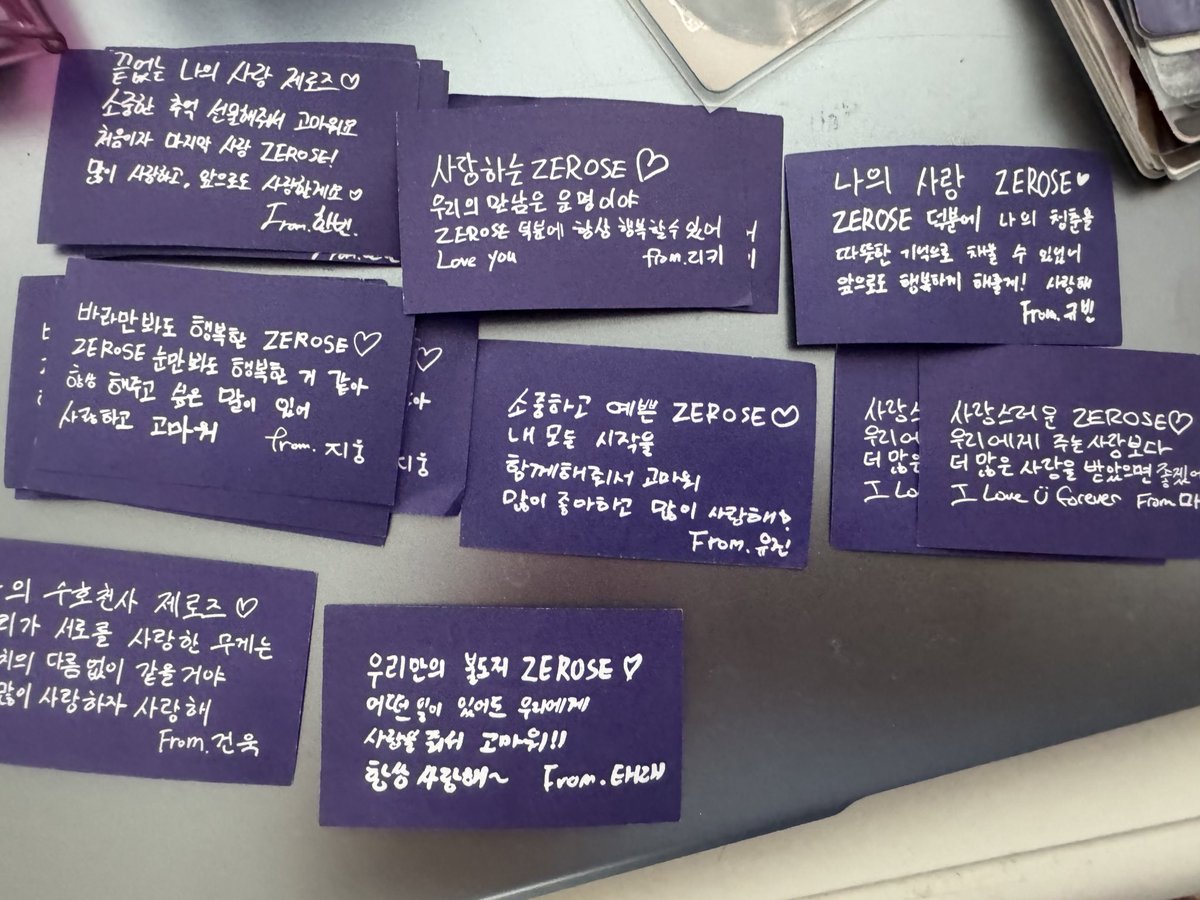 끝없는 나의 사랑 제로즈♡
소중한 추억 선물해줘서 고마워요
처음이자 마지막 사랑 ZEROSE!
많이 사랑하고, 앞으로도 사랑할게요♡
From.한빈.
사랑하는 ZEROSE♡
우리의 만남은 운명이야
ZEROSE 덕분에 항상 행복할 수 있어
Love you from.리키
나의 사랑 ZEROSE♥
ZEROSE 덕분에 나의 청춘을
따뜻한 기억으로 채울 수 있었어
앞으로도 행복하게 해줄게! 사랑해
From.규빈
바라만봐도 행복한 ZEROSE♡
ZEROSE 눈만봐도 행복한 거 같아
항상 해주고 싶은 말이 있어
사랑하고 고마워 from.지웅
지웅
소중하고 예쁜 ZEROSE♡
내 모든 시작을
함께해줘서 고마워
많이 좋아하고 많이 사랑해♡
From.유진
사랑스
우리에
더 많은
I Lo
사랑스러운 ZEROSE♡
우리에게 주는 사랑보다
더 많은 사랑을 받았으면 좋겠어
I Love Ü forever From 마
의 수호천사 제로즈♡
리가 서로를 사랑한 무게는
치의 다름없이 같을거야
많이 사랑하자 사랑해
From.건욱
우리만의 보도지 ZEROSE♡
어떤 일이 있어도 우리에게
사랑을 줘서 고마워!!
항상 사랑해~ From.태래